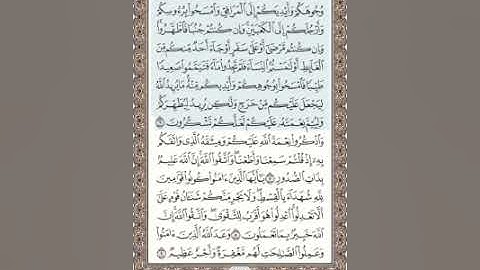 وُجُوهَكُمْ وَأَيْدِيَكُمْ إِلَى ٱلْمَرَافِقِ وَٱمْسَحُوا۟ بِرُءُوسِكُمْ
وَأَرْجُلَكُمْ إِلَى ٱلْكَعْبَيْنِ ۚ وَإِن كُنتُمْ جُنُبًا فَٱطَّهَّرُوا۟ ۚ
وَإِن كُنتُم مَّرْضَىٰٓ أَوْ عَلَىٰ سَفَرٍ أَوْ جَآءَ أَحَدٌ مِّنكُم مِّنَ
ٱلْغَآئِطِ أَوْ لَٰمَسْتُمُ ٱلنِّسَآءَ فَلَمْ تَجِدُوا۟ مَآءً فَتَيَمَّمُوا۟ صَعِيدًا
طَيِّبًا فَٱمْسَحُوا۟ بِوُجُوهِكُمْ وَأَيْدِيكُم مِّنْهُ ۚ مَا يُرِيدُ ٱللَّهُ
لِيَجْعَلَ عَلَيْكُم مِّنْ حَرَجٍ وَلَٰكِن يُرِيدُ لِيُطَهِّرَكُمْ
وَلِيُتِمَّ نِعْمَتَهُۥ عَلَيْكُمْ لَعَلَّكُمْ تَشْكُرُونَ ٦
وَٱذْكُرُوا۟ نِعْمَةَ ٱللَّهِ عَلَيْكُمْ وَمِيثَٰقَهُ ٱلَّذِى وَاثَقَكُم
بِهِۦٓ إِذْ قُلْتُمْ سَمِعْنَا وَأَطَعْنَا ۖ وَٱتَّقُوا۟ ٱللَّهَ ۚ إِنَّ ٱللَّهَ عَلِيمٌۢ
بِذَاتِ ٱلصُّدُورِ ٧ يَٰٓأَيُّهَا ٱلَّذِينَ ءَامَنُوا۟ كُونُوا۟ قَوَّٰمِينَ
لِلَّهِ شُهَدَآءَ بِٱلْقِسْطِ ۖ وَلَا يَجْرِمَنَّكُمْ شَنَـَٔانُ قَوْمٍ عَلَىٰٓ
أَلَّا تَعْدِلُوا۟ ۚ ٱعْدِلُوا۟ هُوَ أَقْرَبُ لِلتَّقْوَىٰ ۖ وَٱتَّقُوا۟ ٱللَّهَ ۚ إِنَّ
ٱللَّهَ خَبِيرٌۢ بِمَا تَعْمَلُونَ ٨ وَعَدَ ٱللَّهُ ٱلَّذِينَ ءَامَنُوا۟
وَعَمِلُوا۟ ٱلصَّٰلِحَٰتِ ۙ لَهُم مَّغْفِرَةٌ وَأَجْرٌ عَظِيمٌ ٩